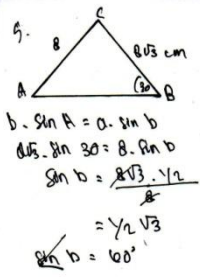 9.
C
8
8√3 cm
A
30
B
b . sin A = a . sin b
8√3 . sin 30 = 8 . sin b
sin b = 8√3 . 1/2 / 8
= 1/2 √3
sin b = 60°